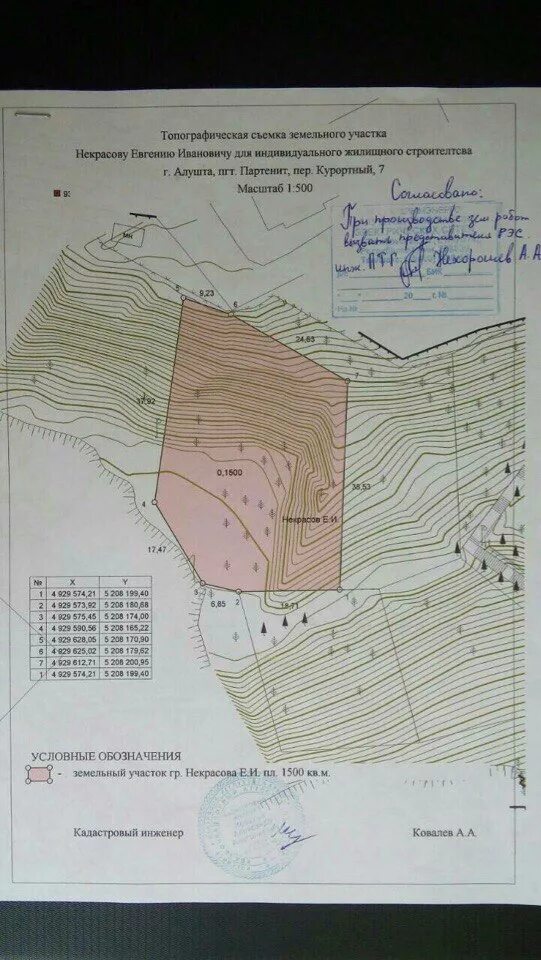 Топографическая съемка земельного участка
Некрасову Евгению Ивановичу для индивидуального жилищного строителтсва
г. Алушта, пгт. Партенит, пер. Курортный, 7
Масштаб 1:500
Согласовано:
При производстве зем работ
вызвать представителя РЭС
инж. ПТГ Нехорошев А.А
20 г. №
На №
МН
5
9,23
6
24,63
7
37,92
0,1500
38,53
Некрасов Е.И.
4
17,47
3
6,85
2
18,71
1
№ X Y
1 4 929 574,21 5 208 199,40
2 4 929 573,92 5 208 180,68
3 4 929 575,45 5 208 174,00
4 4 929 590,56 5 208 165,22
5 4 929 628,05 5 208 170,90
6 4 929 625,02 5 208 179,62
7 4 929 612,71 5 208 200,95
1 4 929 574,21 5 208 199,40
УСЛОВНЫЕ ОБОЗНАЧЕНИЯ
- земельный участок гр. Некрасова Е.И. пл. 1500 кв.м.
Кадастровый инженер Ковалев А.А.